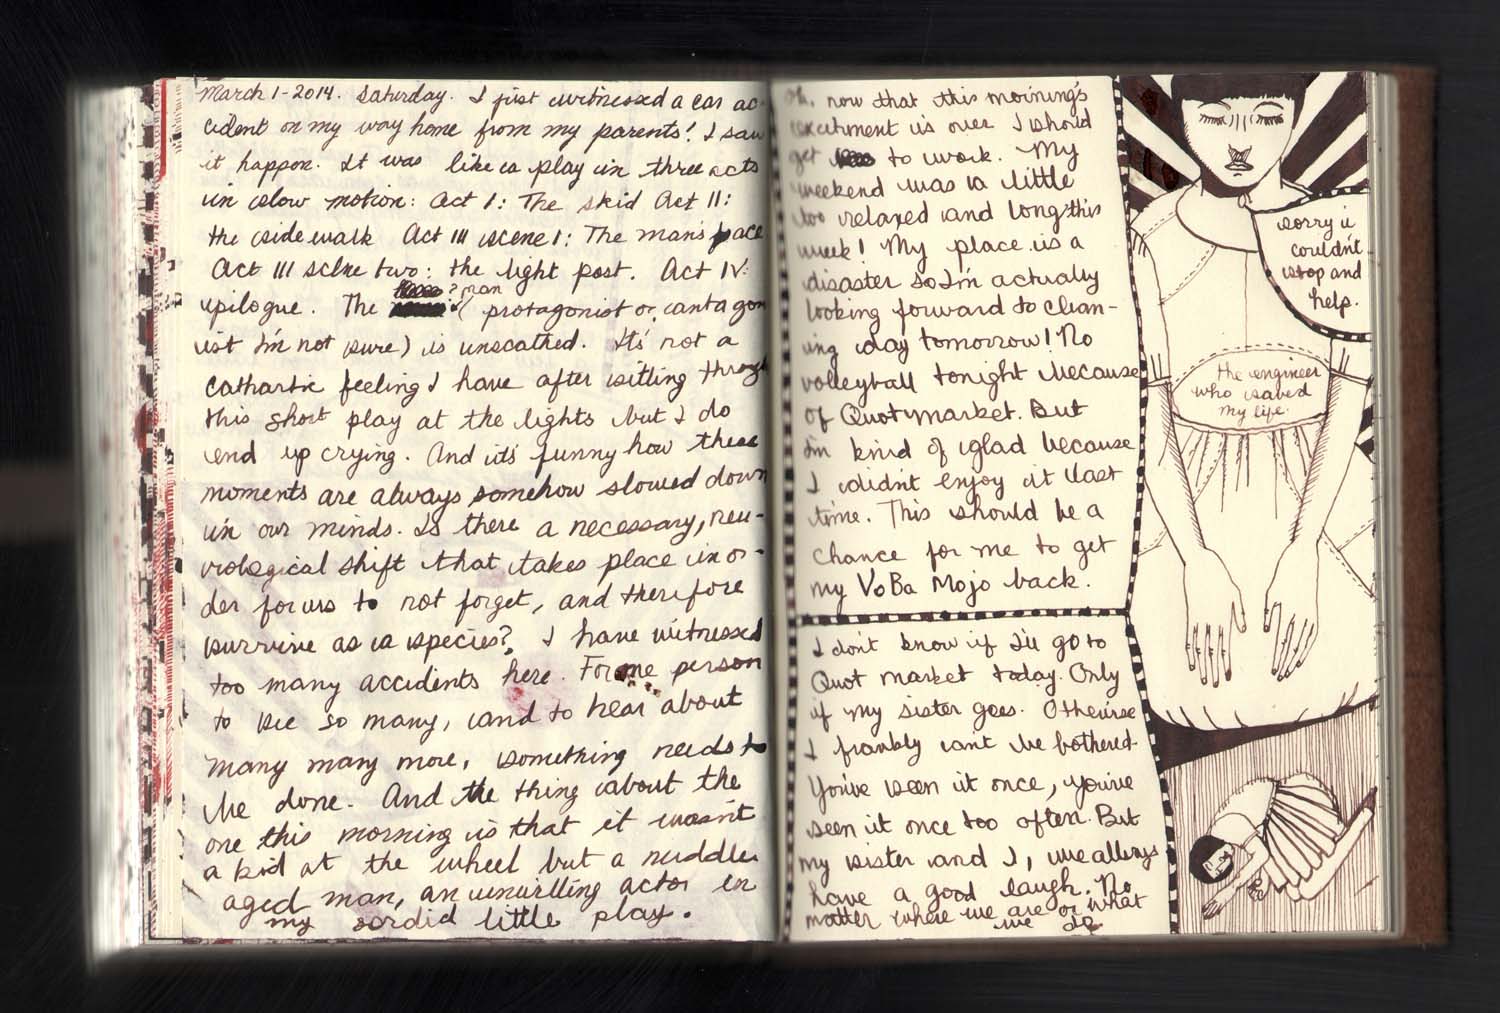 March 1-2014. Saturday. I just witnessed a car ac-
cident on my way home from my parents! I saw
it happen. It was like a play in three acts
in slow motion: Act I: The skid Act II:
the sidewalk Act III scene 1: The man's face
Act III scene two: the light post. Act IV:
? man
epilogue. The ( protagonist or antagon
ist I'm not sure) is unscathed. It's not a
cathartic feeling I have after sitting through
this short play at the lights but I do
end up crying. And it's funny how these
moments are always somehow slowed down
in our minds. Is there a necessary, neu-
rological shift that takes place in or-
der for us to not forget, and therefore
survive as a species? I have witnessed
too many accidents here. For one person
to see so many, and to hear about
many many more, something needs to
be done. And the thing about the
one this morning is that it wasn't
a kid at the wheel but a middle
aged man, an unwilling actor in
my sordid little play.
Oh, now that this morning's
excitement is over I should
get to work. My
weekend was a little
too relaxed and long this
week! My place is a
disaster so I'm actually
looking forward to clean-
ing day tomorrow! No
volleyball tonight because
of Quotmarket. But
I'm kind of glad because
I didn't enjoy it last
time. This should be a
chance for me to get
my VoBa Mojo back.
I don't know if I'll go to
Quot market today. Only
if my sister goes. Otherwise
I frankly can't be bothered.
You've seen it once, you've
seen it once too often. But
my sister and I, we always
have a good laugh. No
matter where we are or what
we do
sorry i
couldn't
stop and
help.
the engineer
who saved
my life.